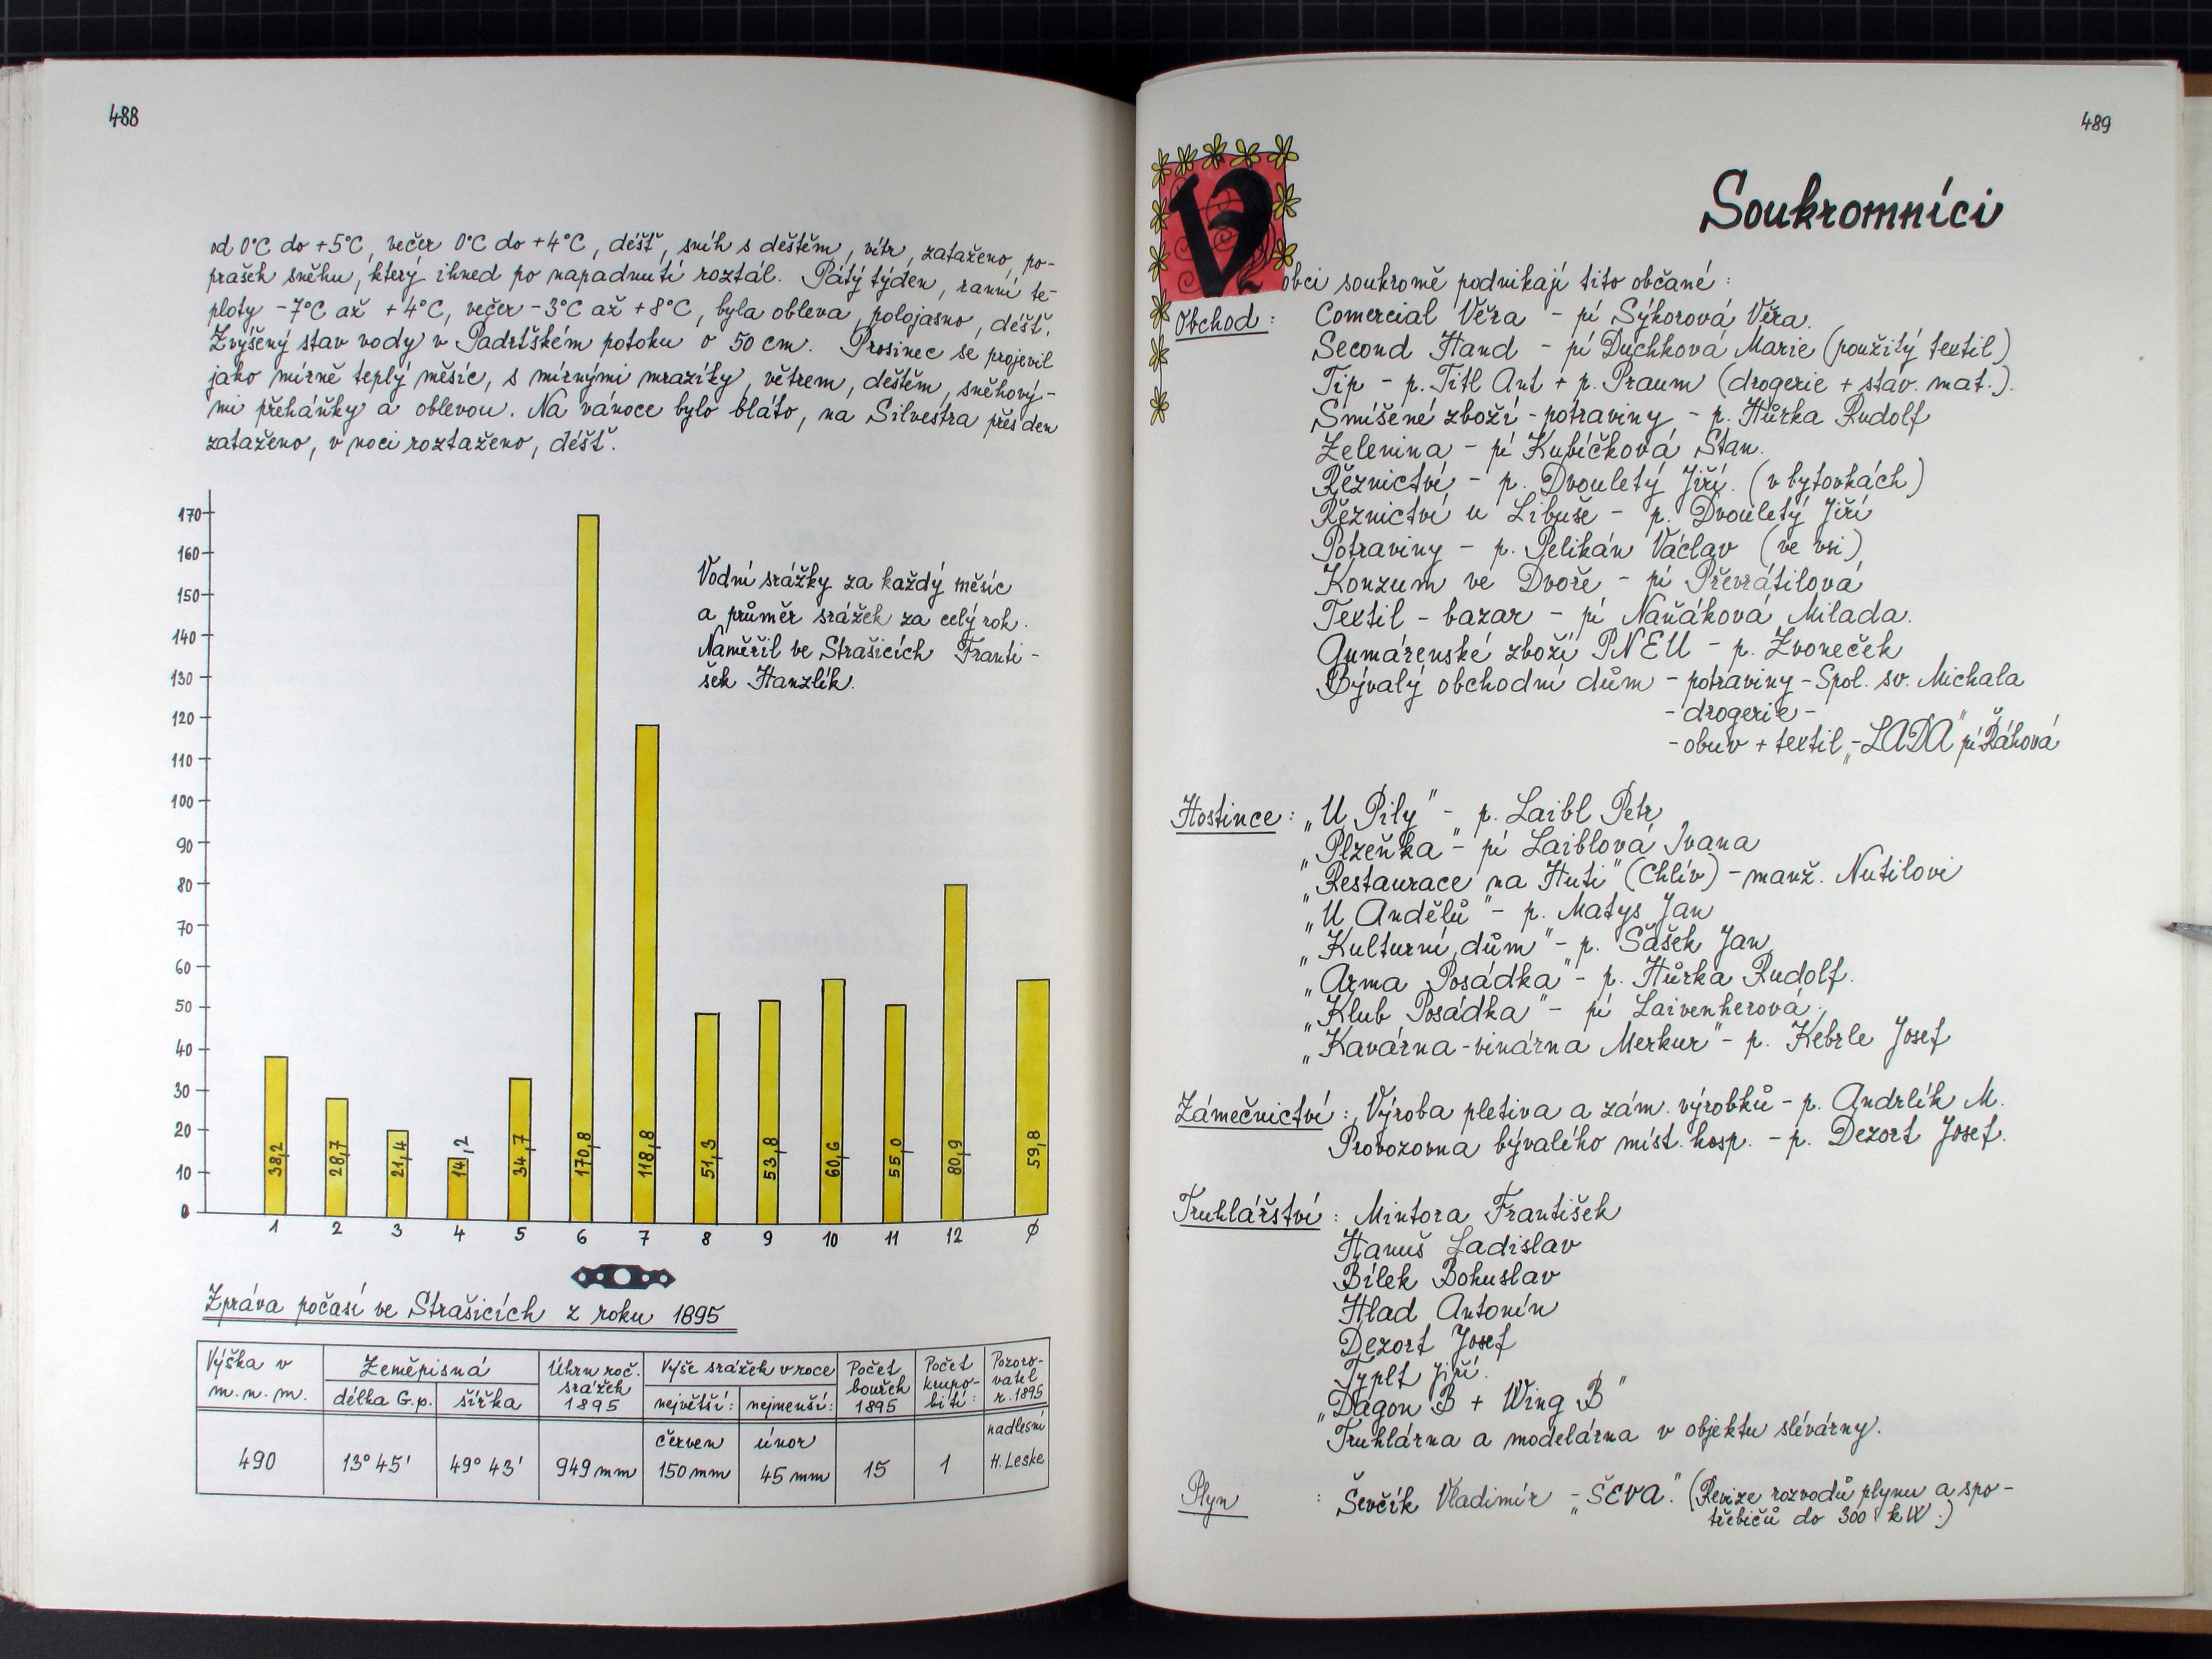 488
od 0°C do +5°C, večer 0°C do +4°C, déšť, sníh s deštěm, vítr, zataženo, po-
prašek sněhu, který ihned po napadnutí roztál. Pátý týden, ranní te-
ploty -7°C až +4°C, večer -3°C až +8°C, byla obleva, polojasno, déšť.
Zvýšený stav vody v Padrťském potoku o 50 cm. Prosinec se projevil
jako mírně teplý měsíc, s mírnými mrazíky, větrem, deštěm, sněhový-
mi přeháňky a oblevou. Na vánoce bylo bláto, na Silvestra přes den
zataženo, v noci roztaženo, déšť.
170
160
150
140
130
120
110
100
90
80
70
60
50
40
30
20
10
0
Vodní srážky za každý měsíc
a průměr srážek za celý rok.
Naměřil ve Strašicích Franti-
šek Hanzlík.
38,2 28,7 21,4 14,2 34,7 170,8 118,8 51,3 53,8 60,6 55,0 80,9 59,8
1 2 3 4 5 6 7 8 9 10 11 12 ø
Zpráva počasí ve Strašicích z roku 1895
Výška v m. n. m. Zeměpisná Úhrn roč. srážek 1895 Výše srážek v roce Počet bouřek 1895 Počet krupo-bití: Pozoro-vatel r. 1895
délka G.p. šířka největší: nejmenší:
490 13° 45' 49° 43' 949 mm červen 150 mm únor 45 mm 15 1 nadlesní H. Leske
489
Soukromníci
V obci soukromě podnikají tito občané:
Obchod: Comercial Věra - pí Sýkorová Věra.
Second Hand - pí Duchková Marie (použitý textil)
Tip - p. Titl Ant + p. Praum (drogerie + stav. mat.).
Smíšené zboží - potraviny - p. Hůrka Rudolf
Zelenina - pí Kubíčková Stan.
Řeznictví - p. Dvouletý Jiří. (v bytovkách)
Řeznictví u Libuše - p. Dvouletý Jiří
Potraviny - p. Pelikán Václav (ve vsi)
Konzum ve Dvoře - pí Převrátilová
Textil - bazar - pí Naňáková Milada.
Gumárenské zboží PNEU - p. Zvoneček
Bývalý obchodní dům - potraviny - Spol. sv. Michala
- drogerie -
- obuv + textil - „LADA" pí Řáhová
Hostince: „U Pily" - p. Laibl Petr
„Plzeňka" - pí Laiblová Ivana
„Restaurace na Huti" (Chlív) - manž. Nutilovi
„U Andělů" - p. Matys Jan
„Kulturní dům" - p. Šašek Jan
„Arma Posádka" - p. Hůrka Rudolf.
„Klub Posádka" - pí Laivenherová.
„Kavárna - vinárna Merkur" - p. Kebrle Josef
Zámečnictví: Výroba pletiva a zám. výrobků - p. Andrlík M.
Provozovna bývalého míst. hosp. - p. Dezort Josef.
Truhlářství: Mintora František
Hanuš Ladislav
Bílek Bohuslav
Hlad Antonín
Dezort Josef
Typlt Jiří.
„Dagon B + Wing B"
Truhlárna a modelárna v objektu slévárny.
Plyn : Ševčík Vladimír - „ŠEVA". (Revize rozvodů plynu a spo-
třebičů do 300 kW.)